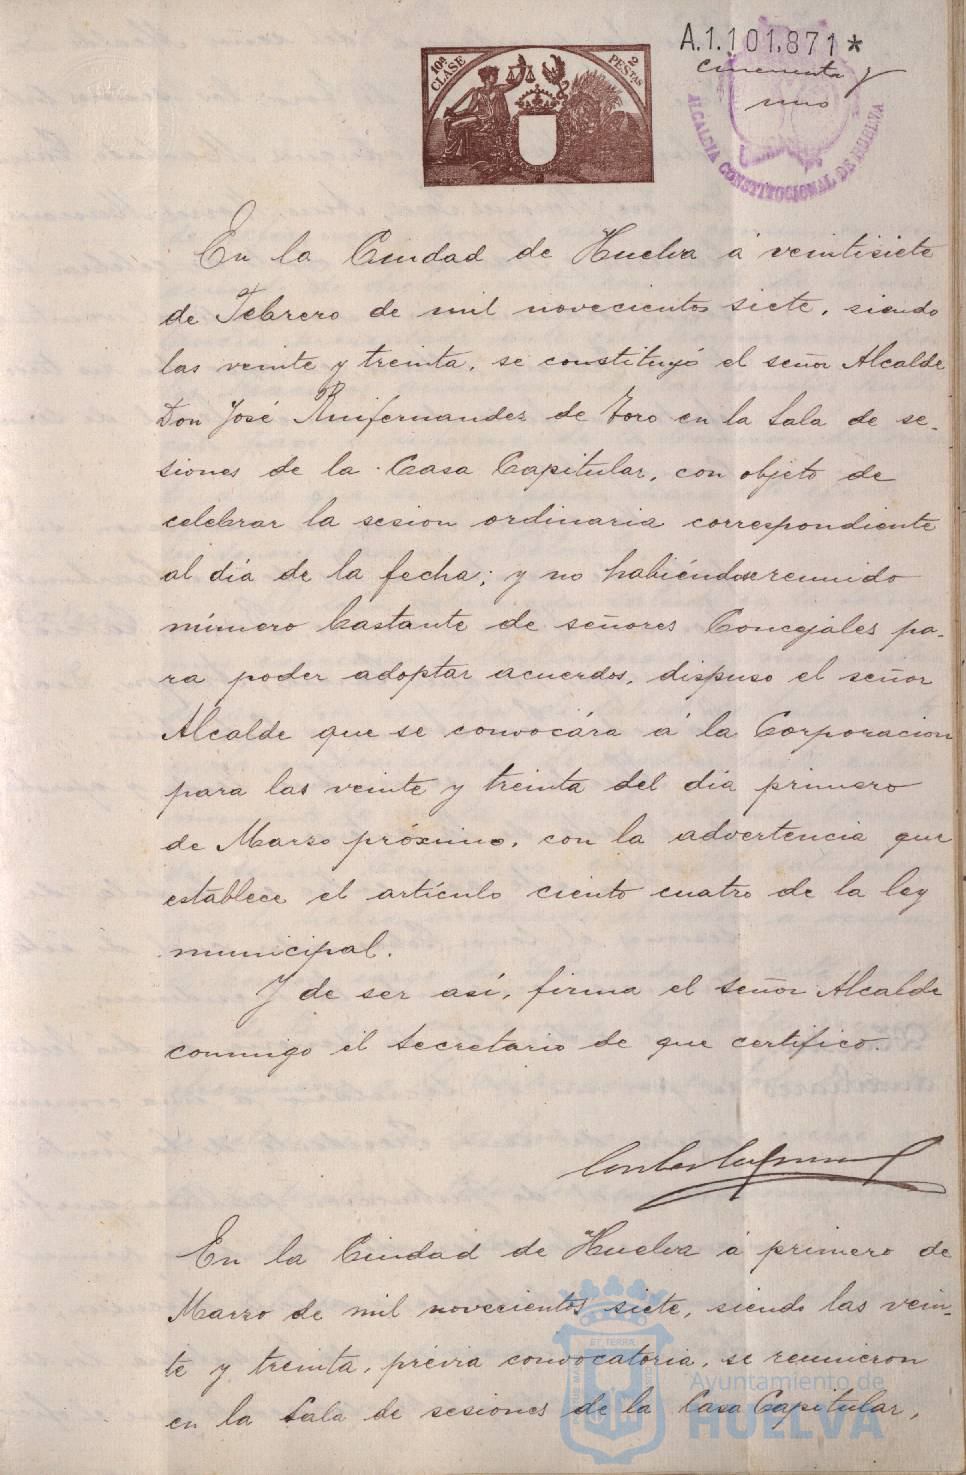 A.1.101.871*
cincuenta y
uno
10ª CLASE
2 PESTAS
ALCALDIA CONSTITUCIONAL DE HUELVA
En la Ciudad de Huelva á veintisiete
de Febrero de mil novecientos siete, siendo
las veinte y treinta, se constituyó el señor Alcalde
Don José Ruifernandez de Toro en la Sala de se-
siones de la Casa Capitular, con objeto de
celebrar la sesion ordinaria correspondiente
al día de la fecha; y no habiéndose reunido
número bastante de señores Concejales pa-
ra poder adoptar acuerdos, dispuso el señor
Alcalde que se convocára á la Corporacion
para las veinte y treinta del día primero
de Marzo próximo, con la advertencia que
establece el artículo ciento cuatro de la ley
municipal.
Y de ser así, firma el señor Alcalde
conmigo el Secretario de que certifico.
En la Ciudad de Huelva á primero de
Marzo de mil novecientos siete, siendo las vein-
te y treinta, prévia convocatoria, se reunieron
en la Sala de sesiones de la Casa Capitular,
Ayuntamiento de
HUELVA